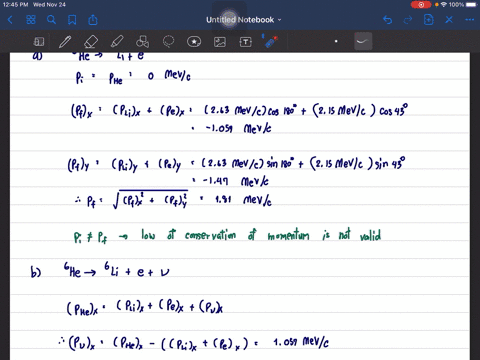 12:45 PM Wed Nov 24
100%
Untitled Notebook
a) ⁶He → ⁶Li + e
Pi = PHe = 0 MeV/c
(Pf)x = (PLi)x + (Pe)x = (2.63 MeV/c) cos 180° + (2.15 MeV/c) cos 45°
= -1.059 MeV/c
(Pf)y = (PLi)y + (Pe)y = (2.63 MeV/c) sin 180° + (2.15 MeV/c) sin 45°
= -1.47 MeV/c
∴ Pf = √((Pf)x² + (Pf)y²) = 1.81 MeV/c
Pi ≠ Pf → low of conservation of momentum is not valid
b) ⁶He → ⁶Li + e + ν
(PHe)x = (PLi)x + (Pe)x + (Pν)x
∴ (Pν)x = (PHe)x - ((PLi)x + (Pe)x) = 1.059 MeV/c